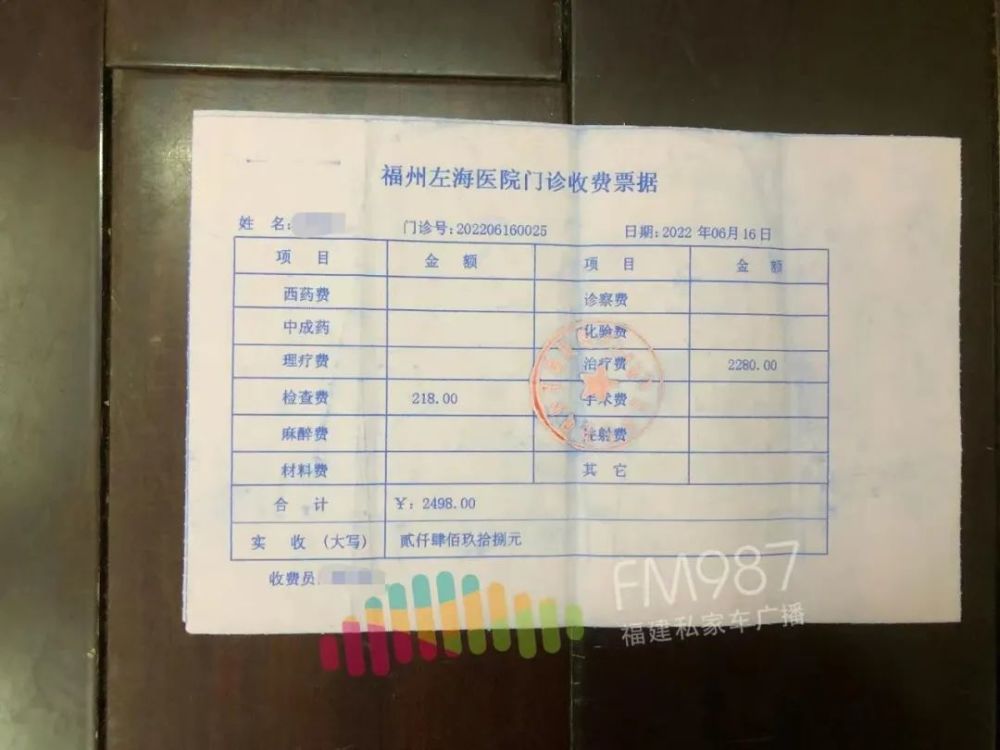 福州左海医院门诊收费票据
姓 名: 门诊号:202206160025 日期:2022 年06月16日
项 目 金 额 项 目 金 额
西药费 诊察费
中成药 化验费
理疗费 治疗费 2280.00
检查费 218.00 手术费
麻醉费 注射费
材料费 其 它
合 计 ¥: 2498.00
实 收 (大写) 贰仟肆佰玖拾捌元
收费员
FM987
福建私家车广播